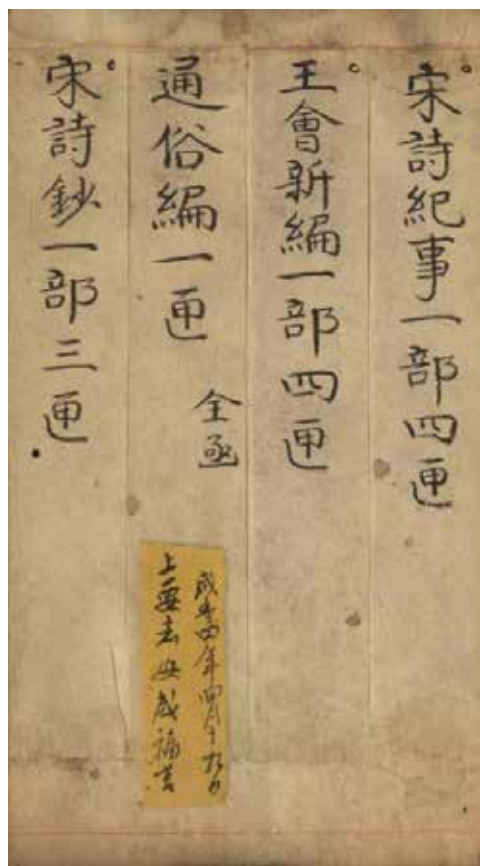 宋詩紀事一部四匣
王會新編一部四匣
通俗編一匣
全函
宋詩鈔一部三匣
咸丰四年四月十九日
上要去